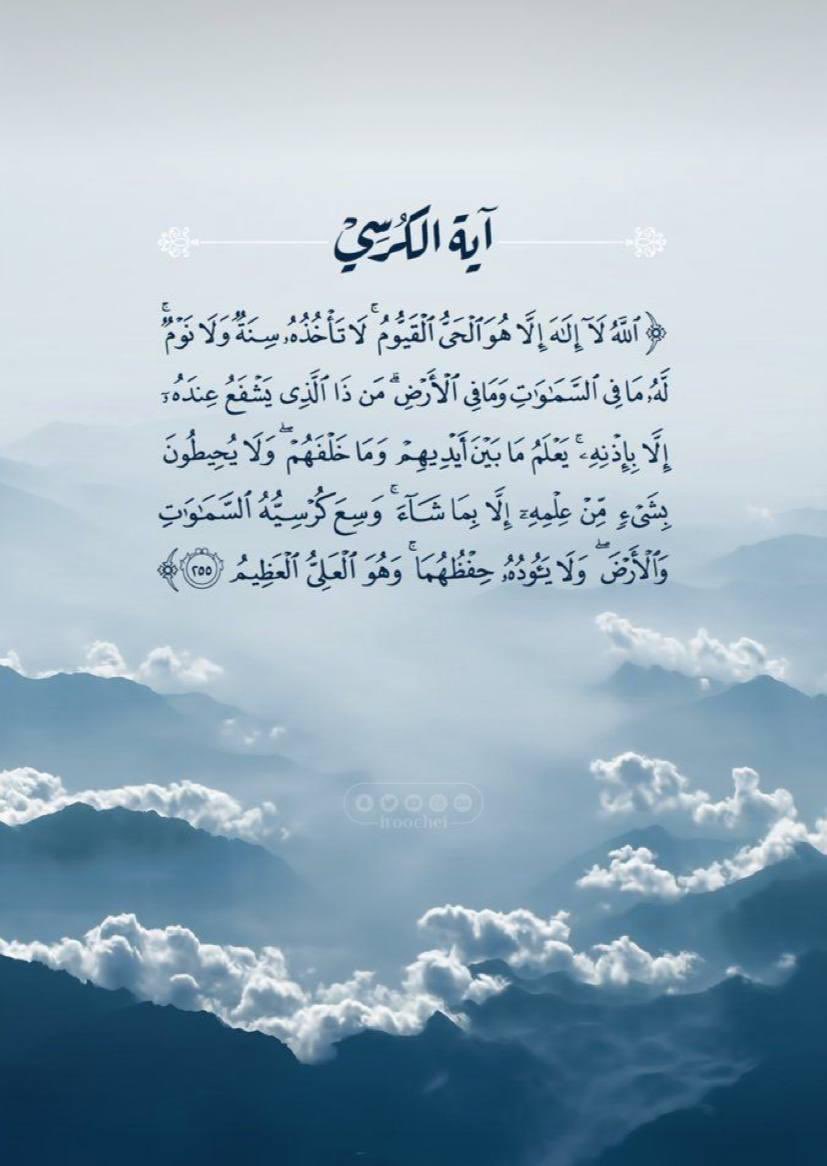 آية الكرسي
﴿ ٱللَّهُ لَآ إِلَٰهَ إِلَّا هُوَ ٱلْحَىُّ ٱلْقَيُّومُ ۚ لَا تَأْخُذُهُۥ سِنَةٌۭ وَلَا نَوْمٌۭ ۚ
لَّهُۥ مَا فِى ٱلسَّمَٰوَٰتِ وَمَا فِى ٱلْأَرْضِ ۗ مَن ذَا ٱلَّذِى يَشْفَعُ عِندَهُۥٓ
إِلَّا بِإِذْنِهِۦ ۚ يَعْلَمُ مَا بَيْنَ أَيْدِيهِمْ وَمَا خَلْفَهُمْ ۖ وَلَا يُحِيطُونَ
بِشَىْءٍۢ مِّنْ عِلْمِهِۦٓ إِلَّا بِمَا شَآءَ ۚ وَسِعَ كُرْسِيُّهُ ٱلسَّمَٰوَٰتِ
وَٱلْأَرْضَ ۖ وَلَا يَـُٔودُهُۥ حِفْظُهُمَا ۚ وَهُوَ ٱلْعَلِىُّ ٱلْعَظِيمُ ٢٥٥ ﴾
iroochei